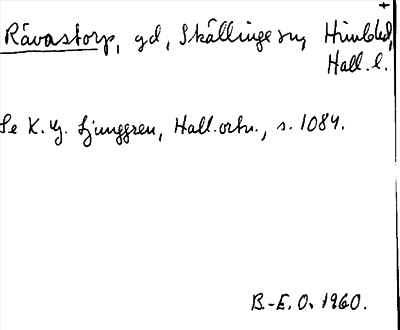 +
Rävastorp, gd, Skällinge sn, Himleled,
Hall. l.
Se K. G. Ljunggren, Hall. ortn., s. 1084.
B.-E. O. 1960.